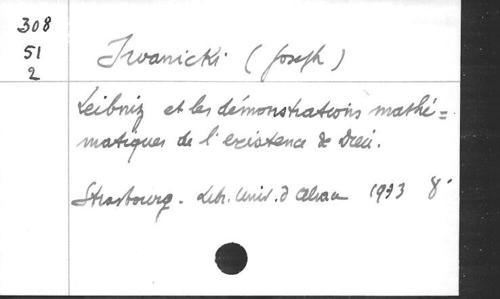 308
51
2
Iwanicki (Joseph)
Leibniz et les démonstrations mathé=
matiques de l'existence de Dieu.
Strasbourg. Libr. Univ. d'Alsace 1933 8°